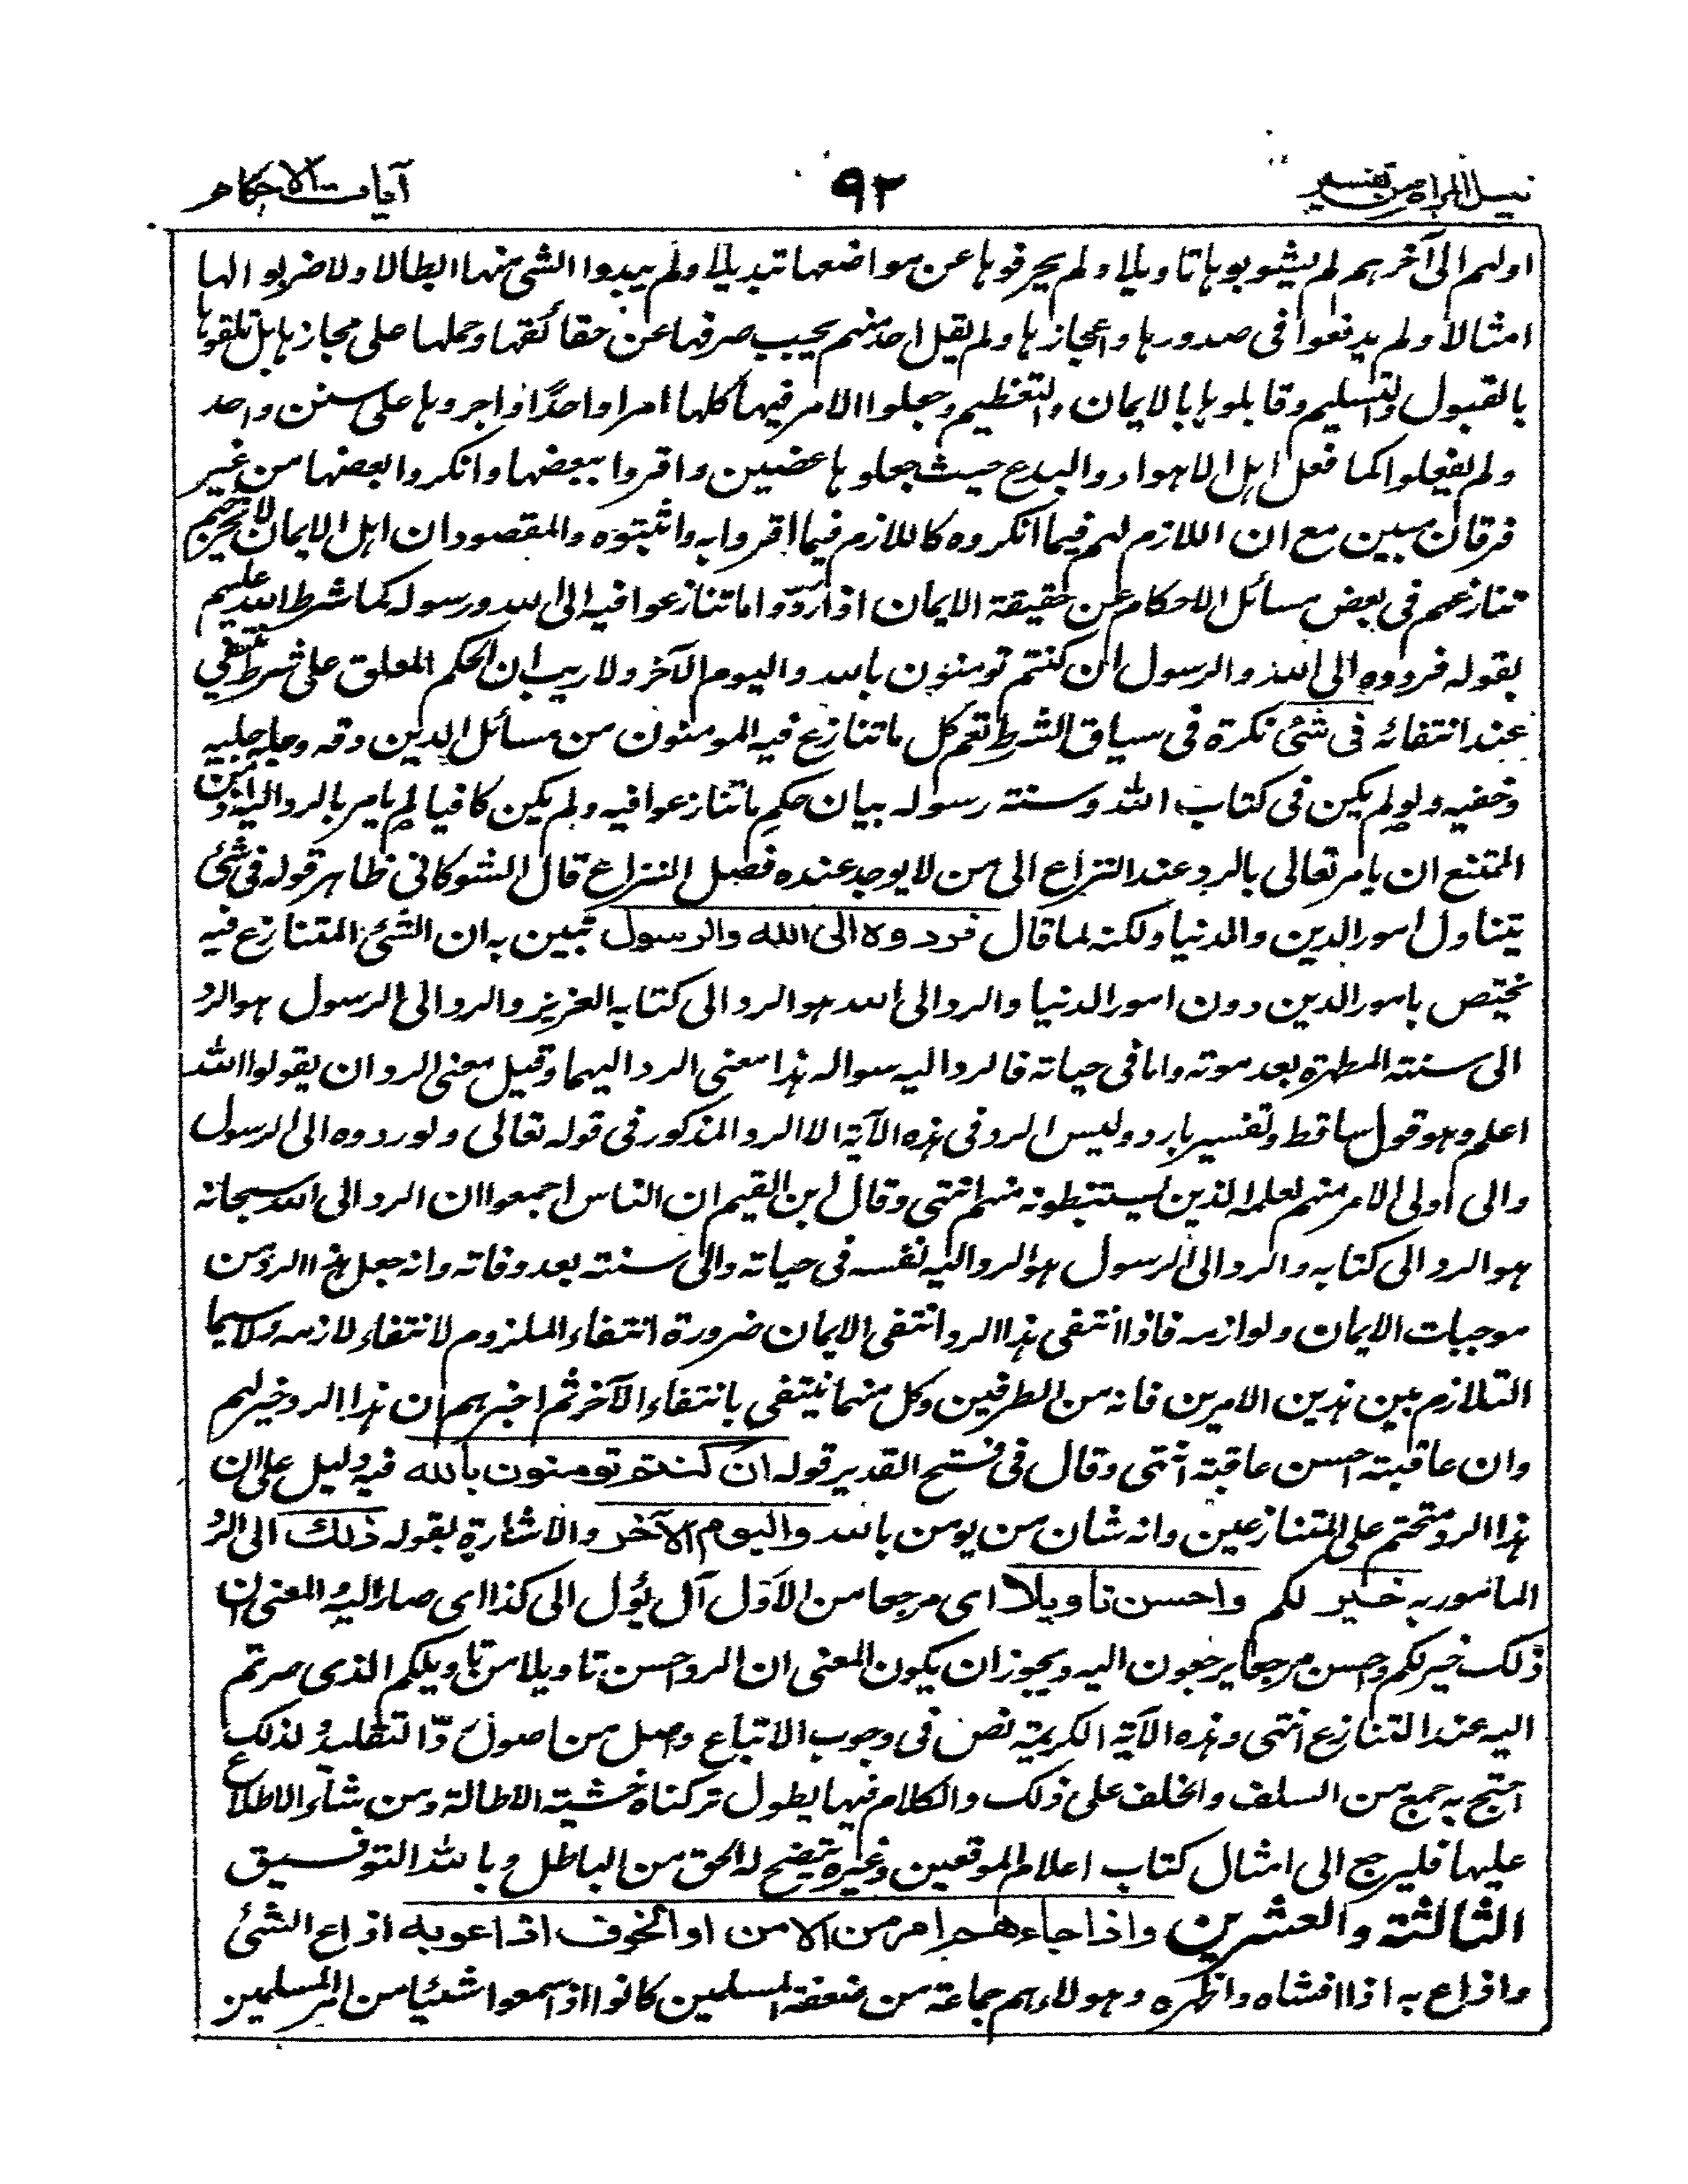 نيل المرام من تفسير ٩٢ آيات الاحكام
اولهم الى آخرهم لم يشوبوها تاويلا ولم يحرفوها عن مواضعها تبديلا ولم يبدوا الشئ منها ابطالا ولا ضربوا لها
امثالا ولم يدفعوا فى صدورها واعجازها ولم يقل احد منهم يجب صرفها عن حقائقها وحملها على مجازها بل تلقوها
بالقبول والتسليم وقابلوها بالايمان والتعظيم وجعلوا الامر فيها كلها امرا واحدًا واجروها على سنن واحد
ولم يفعلوا كما فعل اهل الاهواء والبدع حيث جعلوها عضين واقروا ببعضها وانكروا بعضها من غير
فرقان مبين مع ان اللازم لهم فيما انكروه كاللازم فيما اقروا به واثبتوه والمقصود ان اهل الايمان لا يخرجهم
تنازعهم فى بعض مسائل الاحكام عن حقيقة الايمان اذا ردّوا ما تنازعوا فيه الى الله ورسوله كما شرط الله عليهم
بقوله فردوه الى الله والرسول ان كنتم تومنون بالله واليوم الآخر ولا ريب ان الحكم المعلق على شرط ينتفي
عند انتفائه فى شئ نكرة فى سياق الشرط تعم كل ما تنازع فيه المومنون من مسائل الدين دقه وجله جليه
وخفيه ولو لم يكن فى كتاب الله وسنة رسوله بيان حكم ما تنازعوا فيه ولم يكن كافيا لم يامر بالرد اليه اذ من
الممتنع ان يامر تعالى بالرد عند النزاع الى من لا يوجد عنده فصل النزاع قال الشوكانى ظاهر قوله فى شئ
يتناول امور الدين والدنيا ولكنه لما قال فردوه الى الله والرسول تبين به ان الشئ المتنازع فيه
يختص بامور الدين دون امور الدنيا والرد الى الله هو الرد الى كتابه العزيز والرد الى الرسول هو الرد
الى سنته المطهرة بعد موته واما فى حياته فالرد اليه سواله هذا معنى الرد اليهما وقيل معنى الرد ان يقولوا الله
اعلم وهو قول ساقط وتفسير بارد وليس الرد فى هذه الآية الا الرد المذكور فى قوله تعالى ولو ردوه الى الرسول
والى اولى الامر منهم لعلمه الذين يستنبطونه منهم انتهى وقال ابن القيم ان الناس اجمعوا ان الرد الى الله سبحانه
هو الرد الى كتابه والرد الى الرسول هو الرد اليه نفسه فى حياته والى سنته بعد وفاته وانه جعل هذا الرد من
موجبات الايمان ولوازمه فاذا انتفى هذا الرد انتفى الايمان ضرورة انتفاء الملزوم لانتفاء لازمه ولا سيما
التلازم بين هذين الامرين فانه من الطرفين وكل منهما ينتفى بانتفاء الآخر ثم اخبرهم ان هذا الرد خير لهم
وان عاقبته احسن عاقبة انتهى وقال فى فتح القدير قوله ان كنتم تومنون بالله فيه دليل على ان
هذا الرد متحتم على المتنازعين وانه شان من يومن بالله واليوم الآخر والاشارة بقوله ذلك الى الرد
المامور به خير لكم واحسن تاويلا اى مرجعا من الاَوْل آل يؤل الى كذا اى صار اليه والمعنى ان
ذلك خير لكم واحسن مرجعا يرجعون اليه ويجوز ان يكون المعنى ان الرد احسن تاويلا من تاويلكم الذى صرتم
اليه عند التنازع انتهى وهذه الآية الكريمة نص فى وجوب الاتباع واصل من اصول ردّ التقليد لذلك
احتج به جمع من السلف والخلف على ذلك والكلام فيها يطول تركناه خشية الاطالة ومن شاء الاطلاع
عليها فليرجع الى امثال كتاب اعلام الموقعين وغيره يتضح له الحق من الباطل وبالله التوفيق
الثالثة والعشرين واذا جاءهم امر من الامن او الخوف اذاعوا به اذاع الشئ
واذاع به اذا افشاه واظهره وهولاء هم جماعة من ضعفة المسلمين كانوا اذا سمعوا شيئا من امر المسلمين